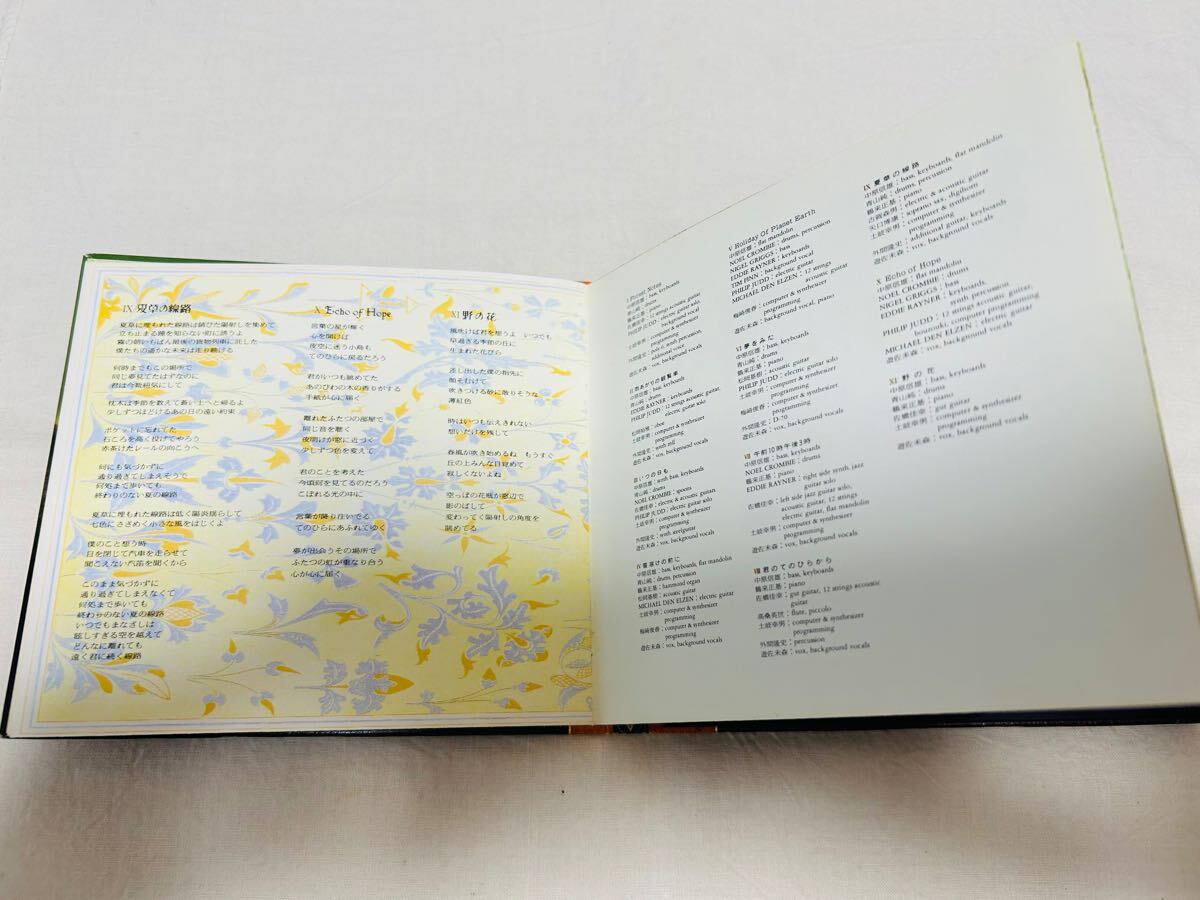 IX 夏草の線路
夏草に埋もれた線路は錆びた陽射しを集めて
立ち止まる踵を知らない町に誘うよ
霧の朝いちばん最後の貨物列車に託した
僕たちの遥かな未来は走り続ける
何時までもこの場所で
同じ夢見てたはずなのに
君は今歌紐気にして
枕木は季節を数えて蒼い土へと帰るよ
少しずつほどけるあの日の遠い約束
ポケットに忘れてた
石ころを高く投げてやろう
赤茶けたレールの向こうへ
何にも気づかずに
通り過ぎてしまえそうで
何処まで歩いても
終わりのない夏の線路
夏草に埋もれた線路は低く陽炎揺らして
七色にささめく小さな風をはじくよ
僕のこと想う時
目を閉じて汽車を走らせて
聞こえない汽笛を聞くから
このまま気づかずに
通り過ぎてしまえなくて
何処まで歩いても
終わりのない夏の線路
いつでもまなざしは
眩しすぎる空を越えて
どんなに離れても
遠く君に続く線路
X Echo of Hope
言葉の星が輝く
心を開けば
夜空に迷う小鳥も
てのひらに戻るだろう
君がいつも眺めてた
あのびわの木の香りがする
手紙が心に届く
離れたふたつの部屋で
同じ音を聴く
夜明けが窓に近づく
少しずつ色を変えて
君のことを考えた
今頃何を見てるのだろう
こぼれる光の中に
言葉が降り注いでる
てのひらにあふれてゆく
夢が出会うその場所で
ふたつの虹が重なり合う
心が心に届く
XI 野の花
風吹けば君を想うよ いつでも
早過ぎる季節の丘に
生まれた花びら
差し出した僕の指先に
顔そむけて
吹きつける砂に散りそうな
薄紅色
時はいつも伝えきれない
想いだけを残して
春風が吹き始めるね もうすぐ
丘の上みんな目覚めて
寂しくないよね
空っぽの花瓶が窓辺で
影のばして
変わってく陽射しの角度を
眺めてる
I Forest Notes
中原信雄：bass, keyboards
青山純：drums
土岐幸男：computer & synthesizer
programming
遊佐未森：vox, background vocals
II 雨あがりの観覧車
中原信雄：bass, keyboards
青山純：drums
EDDIE RAYNER：keyboards
PHILIP JUDD：12 strings acoustic guitar,
electric guitar
松岡裕雅：oboe
土岐幸男：computer & synthesizer
programming
遊佐未森：vox, background vocals
III いつの日も
中原信雄：synth bass, keyboards
青山純：drums
NOEL CROMBIE：spoons
佐橋佳幸：electric & acoustic guitars
PHILIP JUDD：electric guitar solo
土岐幸男：computer & synthesizer
programming
遊佐未森：vox, background vocals
IV 暮海けの前に
中原信雄：bass, keyboards, flat mandolin
青山純：drums, percussion
鶴来正基：hammond organ
松岡基樹：acoustic guitar
MICHAEL DEN ELZEN：acoustic guitar
土岐幸男：computer & synthesizer
programming
梅崎俊春：computer & synthesizer
programming
遊佐未森：vox, background vocals
V Holiday Of Planet Earth
中原信雄：flat mandolin
NOEL CROMBIE：drums, percussion
NIGEL GRIGGS：bass
EDDIE RAYNER：keyboards
TIM FINN：background vocal
PHILIP JUDD：electric guitar
MICHAEL DEN ELZEN：12 strings
acoustic guitar
梅崎俊春：computer & synthesizer
programming
遊佐未森：vox, background vocals, piano
VI 夢をみた
中原信雄：bass, keyboards
青山純：drums
鶴来正基：piano
松岡基樹：acoustic guitar
PHILIP JUDD：electric guitar solo
土岐幸男：computer & synthesizer
programming
梅崎俊春：computer & synthesizer
programming
外間隆史：D-70
遊佐未森：vox, background vocals
VII 午前10時午後3時
中原信雄：bass, keyboards
NOEL CROMBIE：drums
鶴来正基：piano
EDDIE RAYNER：right side synth. jazz
guitar solo
佐橋佳幸：left side jazz guitar solo,
acoustic guitar, 12 strings
acoustic guitar,
electric guitar, flat mandolin
土岐幸男：computer & synthesizer
programming
遊佐未森：vox, background vocals
VIII 君のてのひらから
中原信雄：bass, keyboards
鶴来正基：piano
佐橋佳幸：gut guitar, 12 strings acoustic
guitar
高桑英世：flute, piccolo
土岐幸男：computer & synthesizer
programming
外間隆史：percussion
遊佐未森：vox, background vocals
IX 夏草の線路
中原信雄：bass, keyboards, flat mandolin
青山純：drums, percussion
鶴来正基：piano
古賀森男：electric & acoustic guitar
矢口博康：soprano sax, digihorn
土岐幸男：computer & synthesizer
programming
外間隆史：additional guitar, keyboards
遊佐未森：vox, background vocals
X Echo of Hope
中原信雄：flat mandolin
NOEL CROMBIE：drums
NIGEL GRIGGS：bass
EDDIE RAYNER：keyboards,
synth. percussion
PHILIP JUDD：12 strings acoustic guitar,
bouzouki, computer programming
MICHAEL DEN ELZEN：acoustic guitar
遊佐未森：vox, background vocals
XI 野の花
中原信雄：bass, keyboards
青山純：drums
鶴来正基：piano
佐橋佳幸：gut guitar
土岐幸男：computer & synthesizer
programming
遊佐未森：vox, background vocals